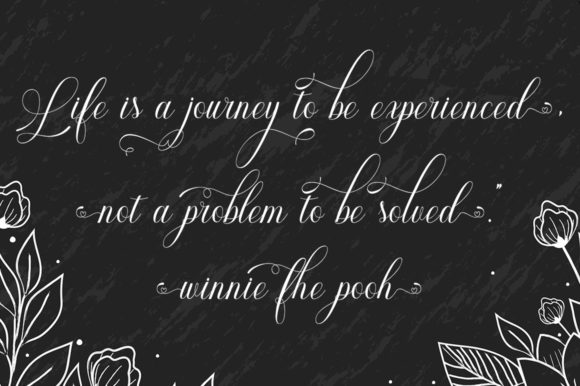 Life is a journey to be experienced,
not a problem to be solved."
winnie the pooh